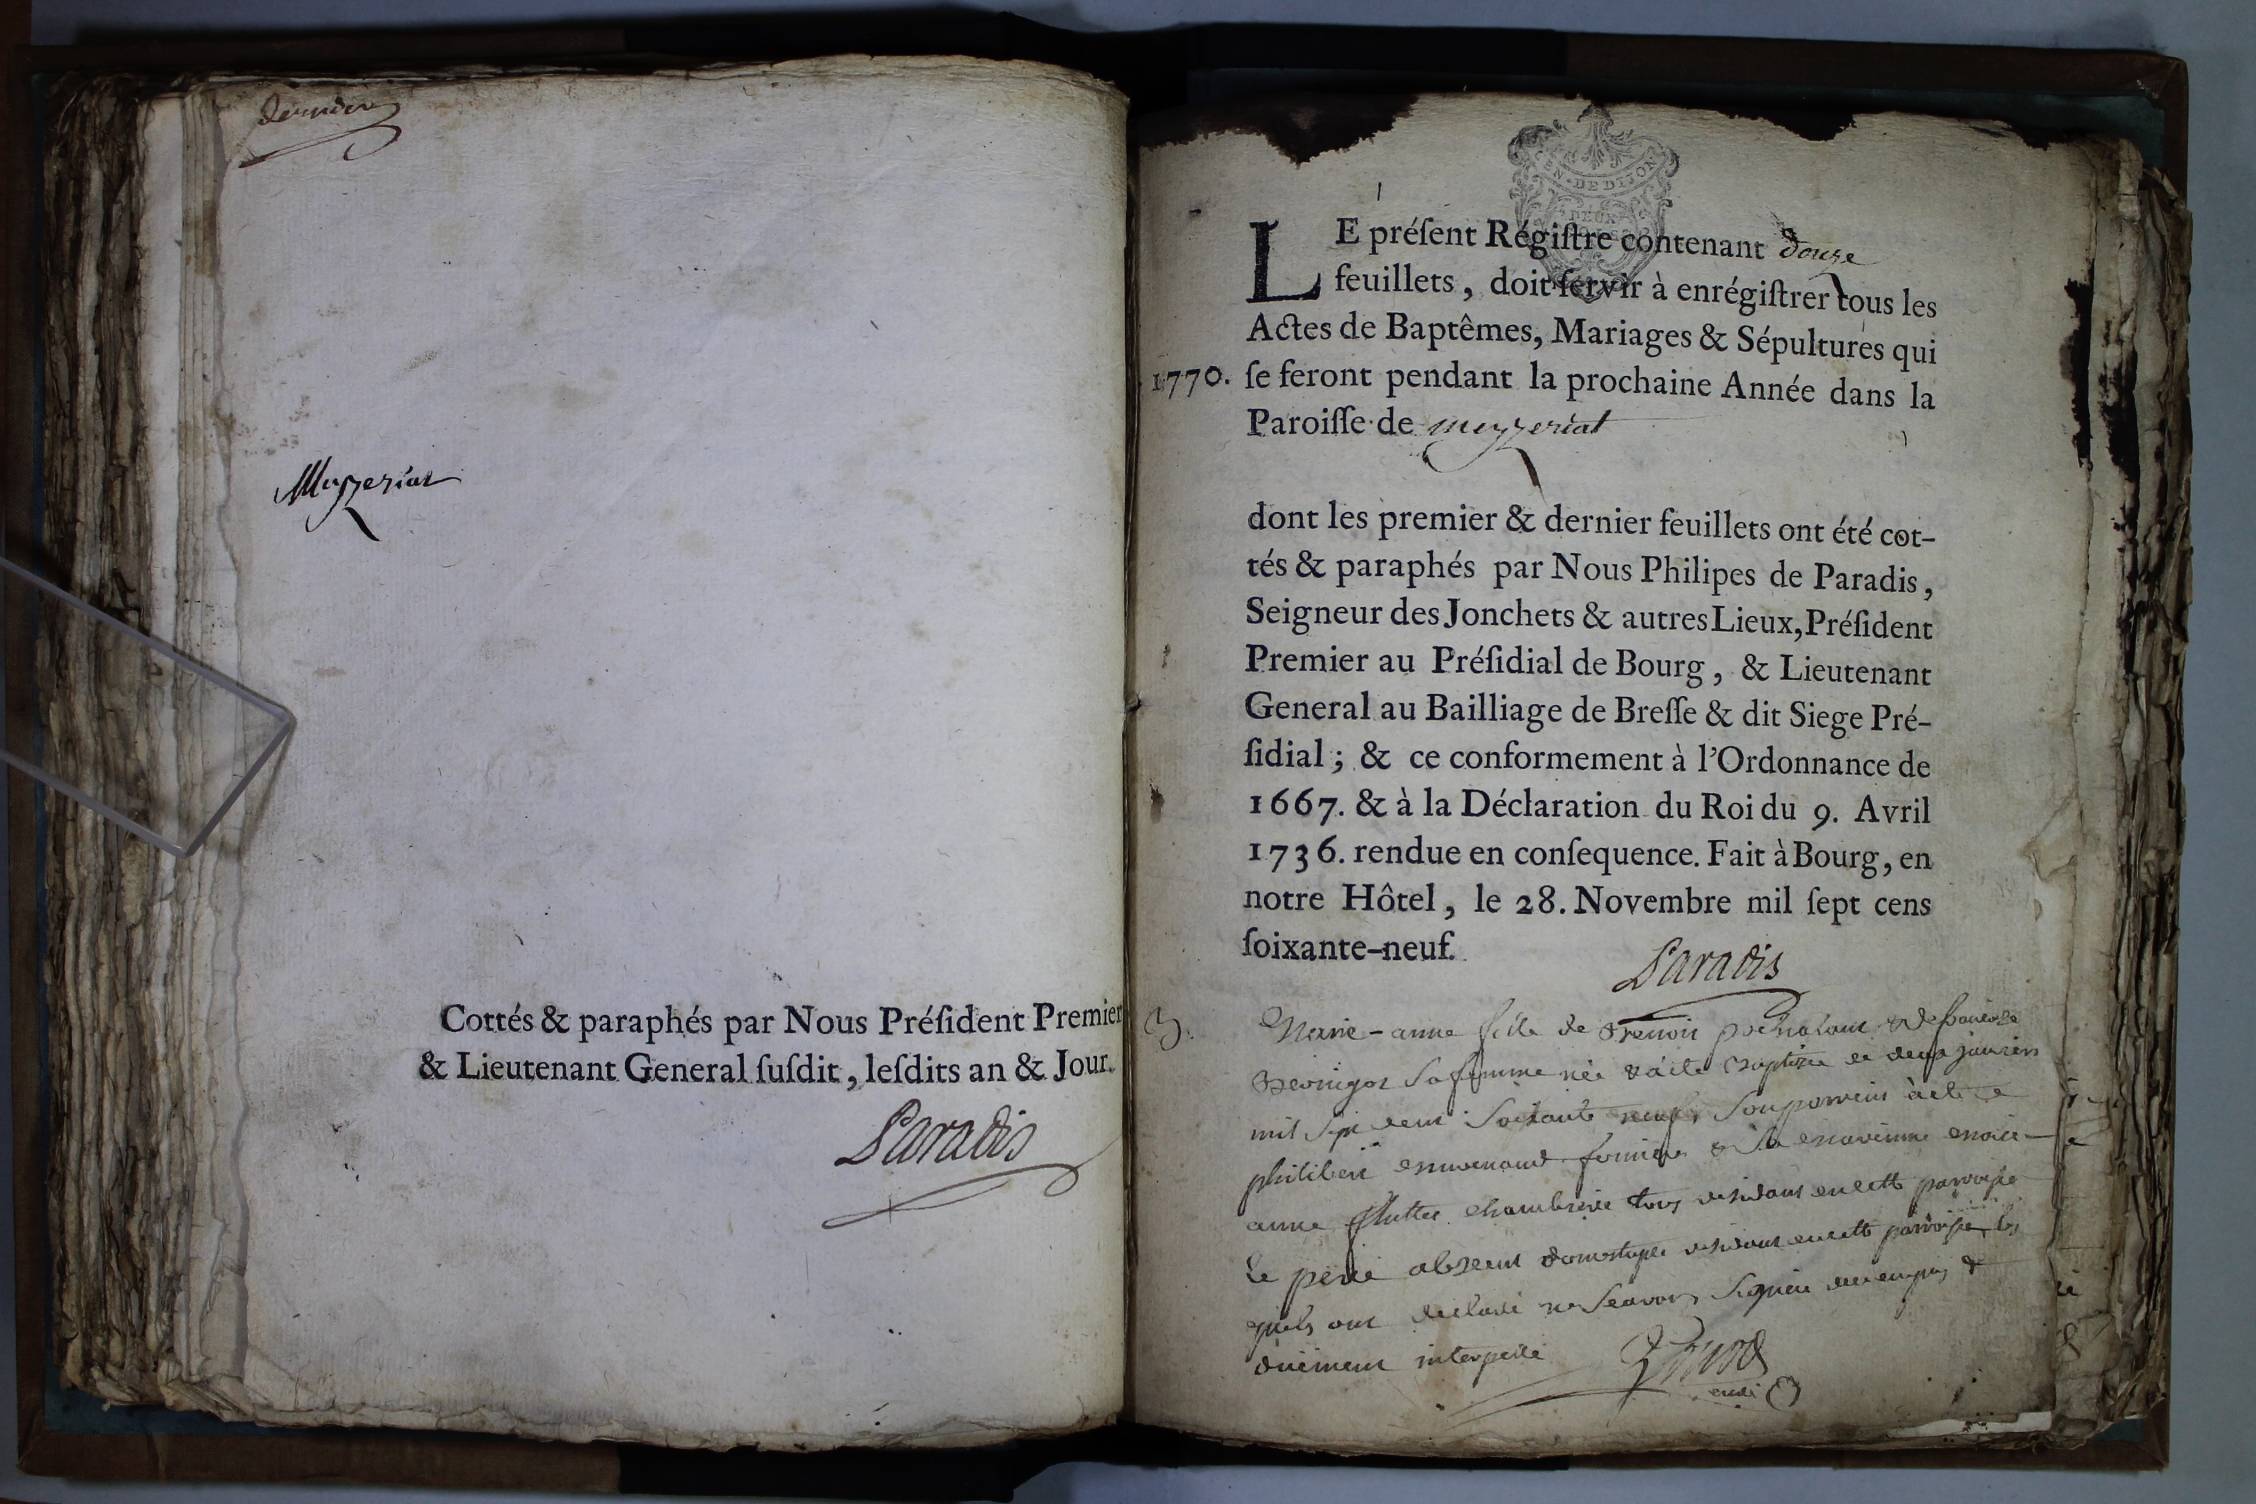 dernier
Mezzeriat
Cottés & paraphés par Nous Préſident Premier
& Lieutenant General ſuſdit, leſdits an & Jour.
Paradis
EN. DE DIJON
DEUX
LE préſent Régiſtre contenant douze
feuillets, doit ſervir à enrégiſtrer tous les
Actes de Baptêmes, Mariages & Sépultures qui
1770. ſe feront pendant la prochaine Année dans la
Paroiſſe de mezzeriat
dont les premier & dernier feuillets ont été cot-
tés & paraphés par Nous Philipes de Paradis,
Seigneur des Jonchets & autres Lieux, Préſident
Premier au Préſidial de Bourg, & Lieutenant
General au Bailliage de Breſſe & dit Siege Pré-
ſidial; & ce conformement à l'Ordonnance de
1667. & à la Déclaration du Roi du 9. Avril
1736. rendue en conſequence. Fait à Bourg, en
notre Hôtel, le 28. Novembre mil ſept cens
ſoixante-neuf.
Paradis
B. Marie-anne fille de Benoit & de francoise
sa femme née a été baptisée le deux janvier
mil sept cent soixante neuf, son parrein a été
philibert fermier & la marreinne marie
anne chambriere tous residans en cette parroisse
le pere absent domestique residant en cette parroisse les
quels ont declaré ne scavoir signer de ce enquis &
duëment interpellé
curé